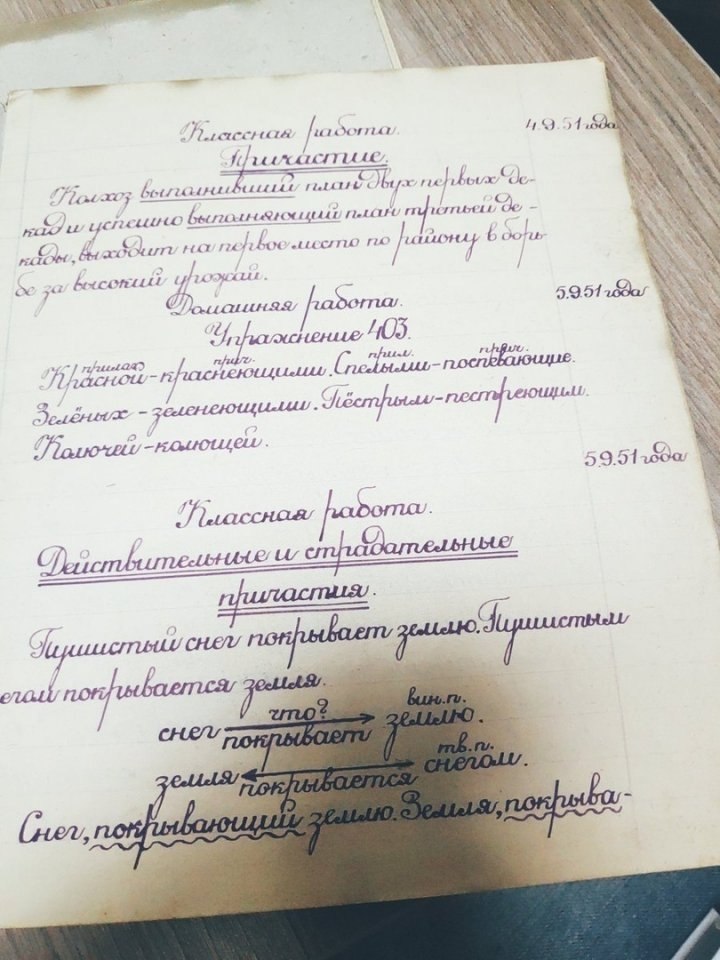 Классная работа. 4.9.51 года
Причастие.
Колхоз выполнивший план двух первых де-
кад и успешно выполняющий план третьей де-
кады, выходит на первое место по району в борь-
бе за высокий урожай.
Домашняя работа. 5.9.51 года
Упражнение 403.
прилаг. прич. прил. прич.
Красной-краснеющими. Спелыми-поспевающие.
Зелёных-зеленеющими. Пёстрым-пестреющим.
Колючей-колющей.
5.9.51 года
Классная работа.
Действительные и страдательные
причастия.
Пушистый снег покрывает землю. Пушистым
егом покрывается земля.
снег что? покрывает землю. вин.п.
земля покрывается снегом. тв.п.
Снег, покрывающий землю. Земля, покрыва-